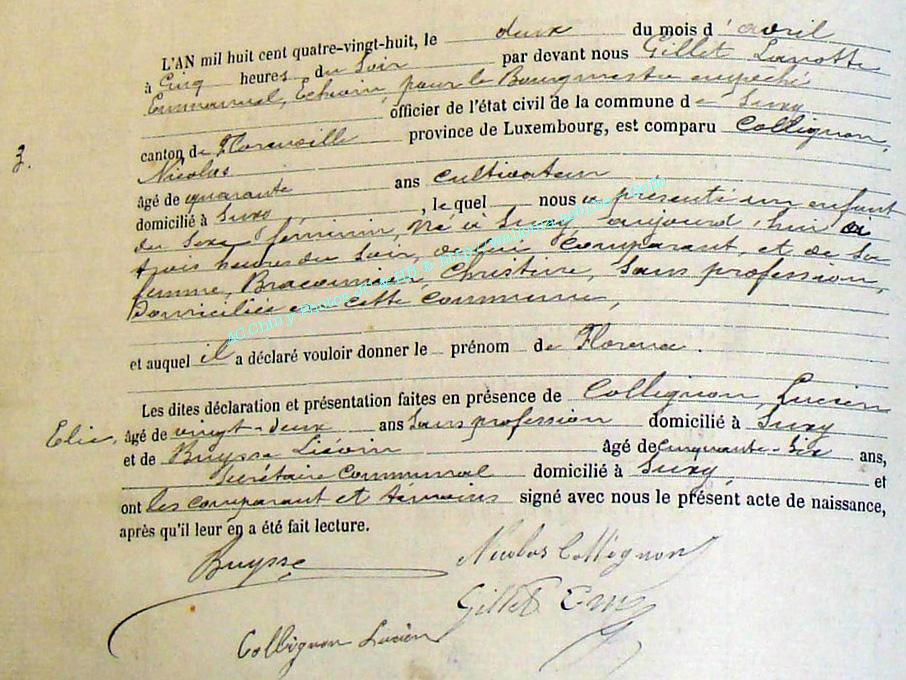 L'AN mil huit cent quatre-vingt-huit, le deux du mois d'avril
à Cinq heures du Soir par devant nous Gillet Lanotte
Emmanuel, Echevin, pour le Bourgmestre empêché
officier de l'état civil de la commune de Suxy
canton de Florenville province de Luxembourg, est comparu Collignon,
Nicolas
3.
âgé de quarante ans Cultivateur
domicilié à Suxy, lequel nous a présenté un enfant
du Sexe féminin, Né à Suxy aujourd'hui à
trois heures du Soir, de lui Comparant, et de Sa
femme, Braconnier, Christine, Sans profession,
Domiciliée en cette Commune,
et auquel il a déclaré vouloir donner le prénom de Florence.
Les dites déclaration et présentation faites en présence de Collignon, Lucien
Elie, âgé de vingt-deux ans Sans profession domicilié à Suxy
et de Buysse Liévin âgé de Cinquante-Six ans,
Secrétaire Communal domicilié à Suxy et
ont les comparant et témoins signé avec nous le présent acte de naissance,
après qu'il leur en a été fait lecture.
Buysse Nicolas Collignon
Gillet Em
Collignon Lucien